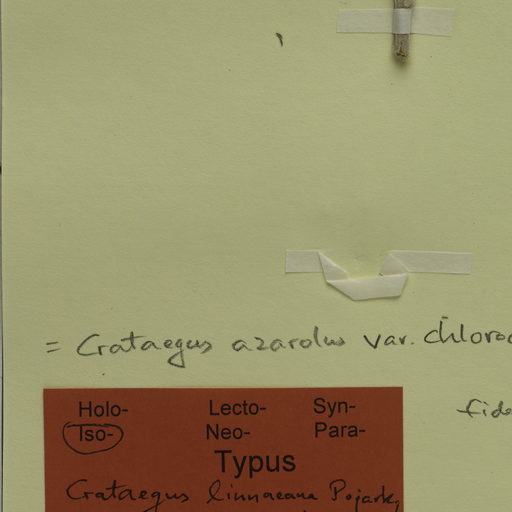 = Crataegus azarolus var. chloroc
fide
Holo- Lecto- Syn-
Iso- Neo- Para-
Typus
Crataegus linnaeana Pojark,